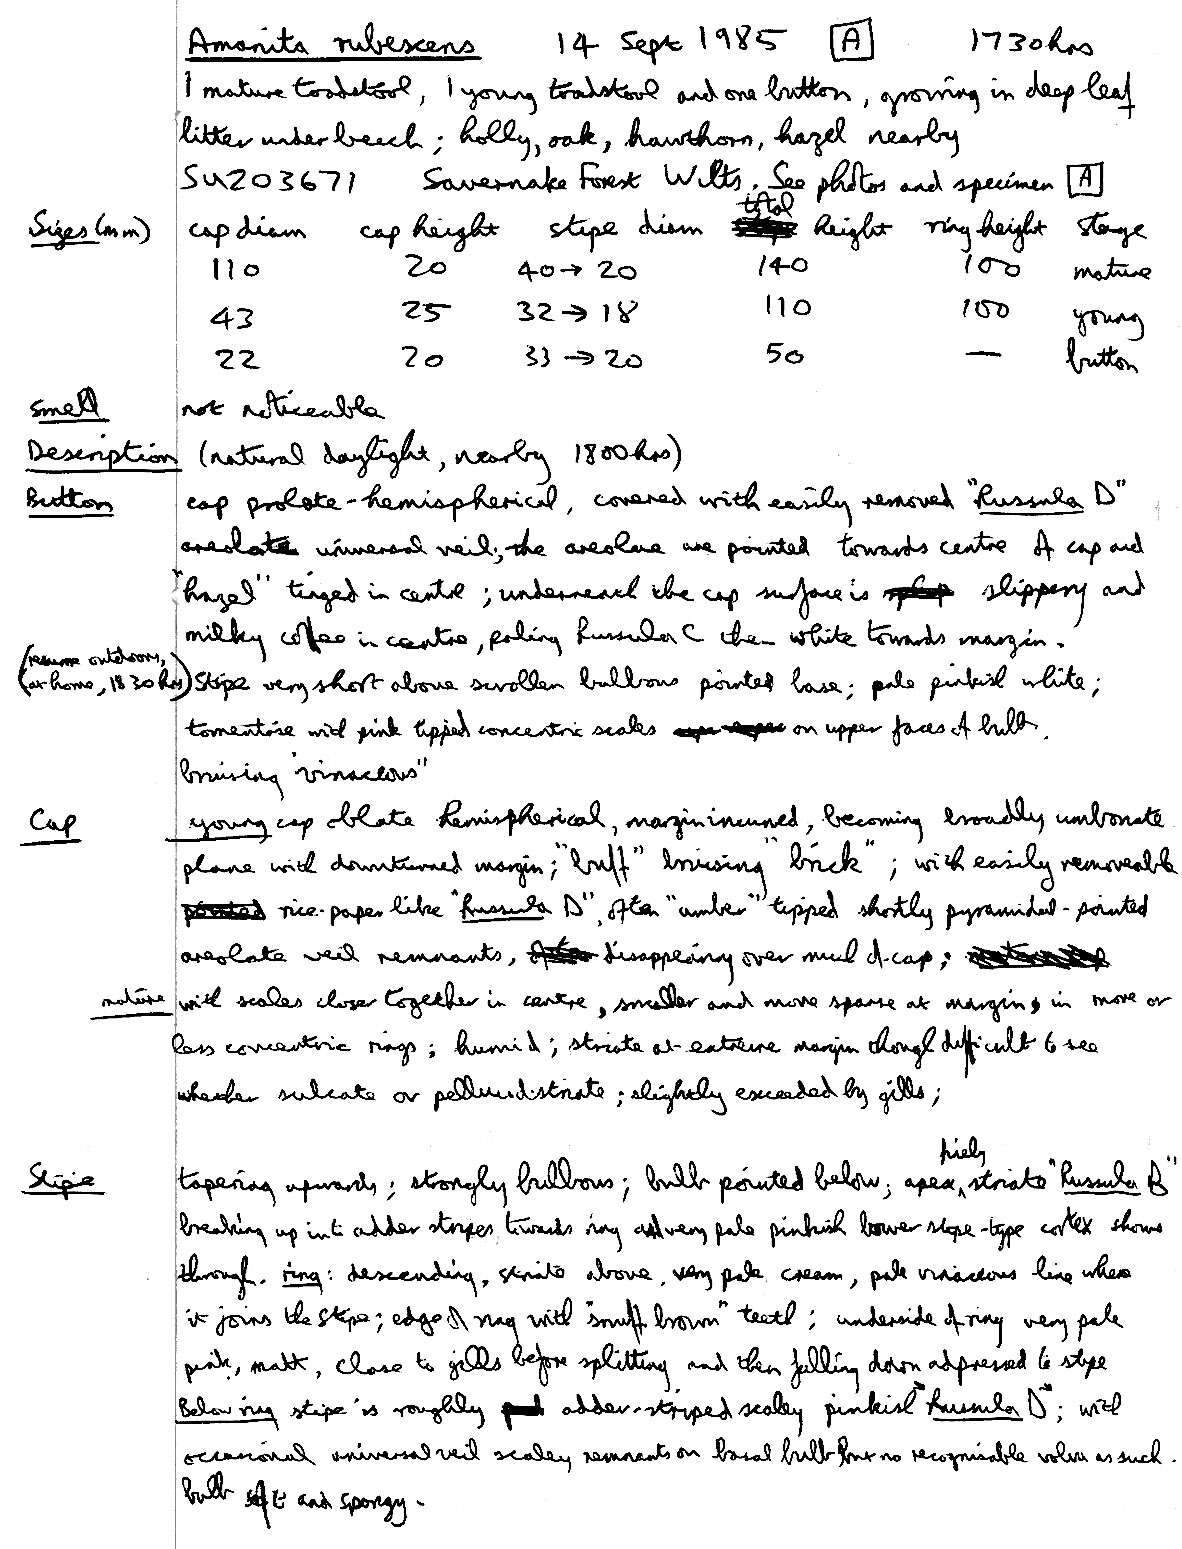 Amanita rubescens 14 Sept 1985 A 1730hrs
1 mature toadstool, 1 young toadstool and one button, growing in deep leaf
litter under beech; holly, oak, hawthorn, hazel nearby
SU203671 Savernake Forest Wilts. See photos and specimen A
Sizes (mm) cap diam cap height stipe diam total height ring height stage
110 20 40→20 140 100 mature
43 25 32→18 110 100 young
22 20 33→20 50 — button
Smell not noticeable
Description (natural daylight, nearby 1800hrs)
Button cap prolate-hemispherical, covered with easily removed "Russula D"
areolate universal veil; the areolae are pointed towards centre of cap and
"hazel" tinged in centre; underneath the cap surface is slippery and
milky coffee in centre, paling Russula C then white towards margin.
(resume outdoors,
(at home, 1830hrs) Stipe very short above swollen bulbous pointed base; pale pinkish white;
tomentose with pink tipped concentric scales on upper faces of bulb.
bruising "vinaceous"
Cap young cap oblate hemispherical, margin incurved, becoming broadly umbonate
plane with downturned margin; "buff" bruising "brick"; with easily removeable
rice-paper like "Russula D", often "umber" tipped shortly pyramidal-pointed
areolate veil remnants, disappearing over much of cap;
mature with scales closer together in centre, smaller and more sparse at margin, in more or
less concentric rings; humid; striate at extreme margin though difficult to see
whether sulcate or pellucid striate; slightly exceeded by gills;
Stipe tapering upwards; strongly bulbous; bulb pointed below; apex finely striate "Russula B"
breaking up into adder stripes towards ring and very pale pinkish lower stipe-type cortex shows
through. ring: descending, striate above, very pale cream, pale vinaceous line where
it joins the stipe; edge of ring with "snuff brown" teeth; underside of ring very pale
pink, matt, close to gills before splitting and then falling down adpressed to stipe
Below ring stipe is roughly adder-striped scaley pinkish "Russula D"; with
occasional universal veil scaley remnants on basal bulb but no recognisable volva as such.
bulb soft and spongy.